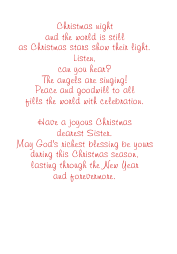 Christmas night
and the world is still
as Christmas stars show their light.
Listen,
can you hear?
The angels are singing!
Peace and goodwill to all
fills the world with celebration.

Have a joyous Christmas
dearest Sister.
May God's richest blessing be yours
during this Christmas season,
lasting through the New Year
and forevermore.